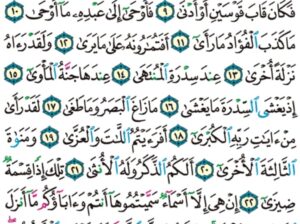 فَكَانَ قَابَ قَوْسَيْنِ أَوْ أَدْنَىٰ ٩ فَأَوْحَىٰ إِلَىٰ عَبْدِهِۦ مَآ أَوْحَىٰ ١٠
مَا كَذَبَ ٱلْفُؤَادُ مَا رَأَىٰٓ ١١ أَفَتُمَٰرُونَهُۥ عَلَىٰ مَا يَرَىٰ ١٢ وَلَقَدْ رَءَاهُ
نَزْلَةً أُخْرَىٰ ١٣ عِندَ سِدْرَةِ ٱلْمُنتَهَىٰ ١٤ عِندَهَا جَنَّةُ ٱلْمَأْوَىٰٓ ١٥
إِذْ يَغْشَى ٱلسِّدْرَةَ مَا يَغْشَىٰ ١٦ مَا زَاغَ ٱلْبَصَرُ وَمَا طَغَىٰ ١٧ لَقَدْ رَأَىٰ
مِنْ ءَايَٰتِ رَبِّهِ ٱلْكُبْرَىٰٓ ١٨ أَفَرَءَيْتُمُ ٱللَّٰتَ وَٱلْعُزَّىٰ ١٩ وَمَنَوٰةَ
ٱلثَّالِثَةَ ٱلْأُخْرَىٰٓ ٢٠ أَلَكُمُ ٱلذَّكَرُ وَلَهُ ٱلْأُنثَىٰ ٢١ تِلْكَ إِذًا قِسْمَةٌ
ضِيزَىٰٓ ٢٢ إِنْ هِىَ إِلَّآ أَسْمَآءٌ سَمَّيْتُمُوهَآ أَنتُمْ وَءَابَآؤُكُم مَّآ أَنزَلَ